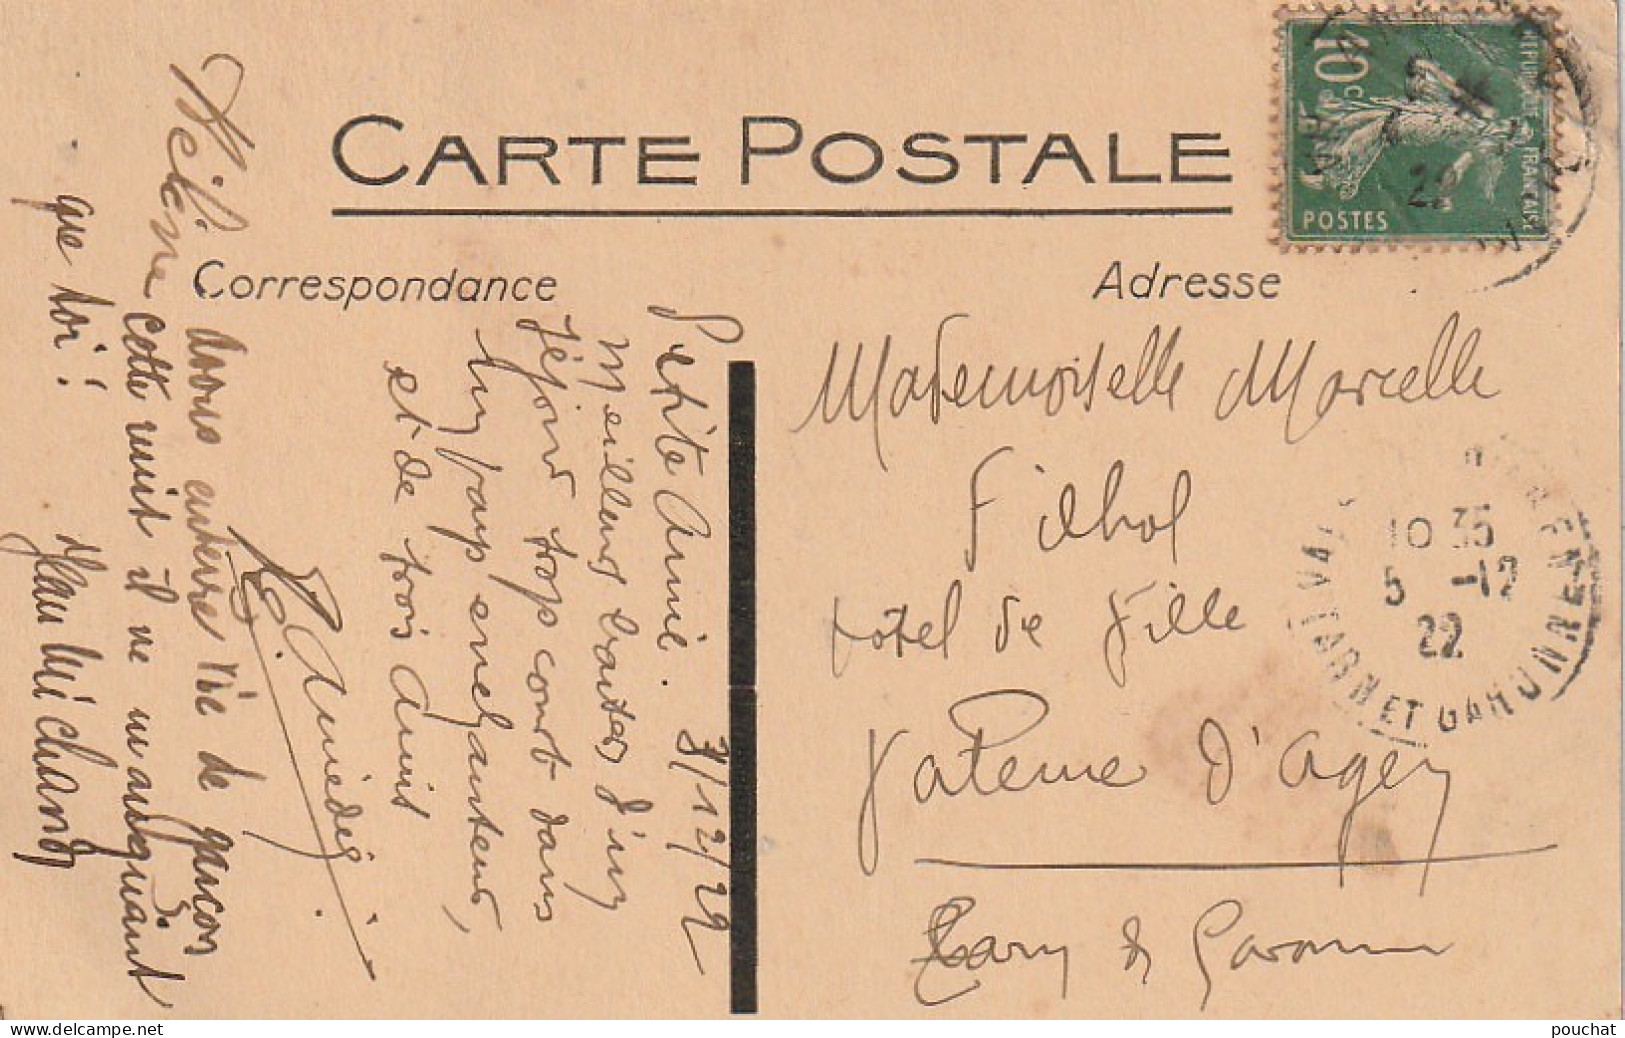 CARTE POSTALE
Correspondance
Adresse
10c
REPUBLIQUE FRANÇAISE
POSTES
22
Petite Amie. 3/12/22
Meilleurs baisers d'un
séjour trop court dans
un pays enchanteur,
et de trois amis
Amédée
Hélène
Nous enterre vie de garçon
cette nuit il ne manquaint
que toi!
Jean Michand
Mademoiselle Marcelle
Filhol
Hôtel de Ville
Valence d'Agen
Tarn & Garonne
10 35
5 -12
22
TARN ET GARONNE
pouchat